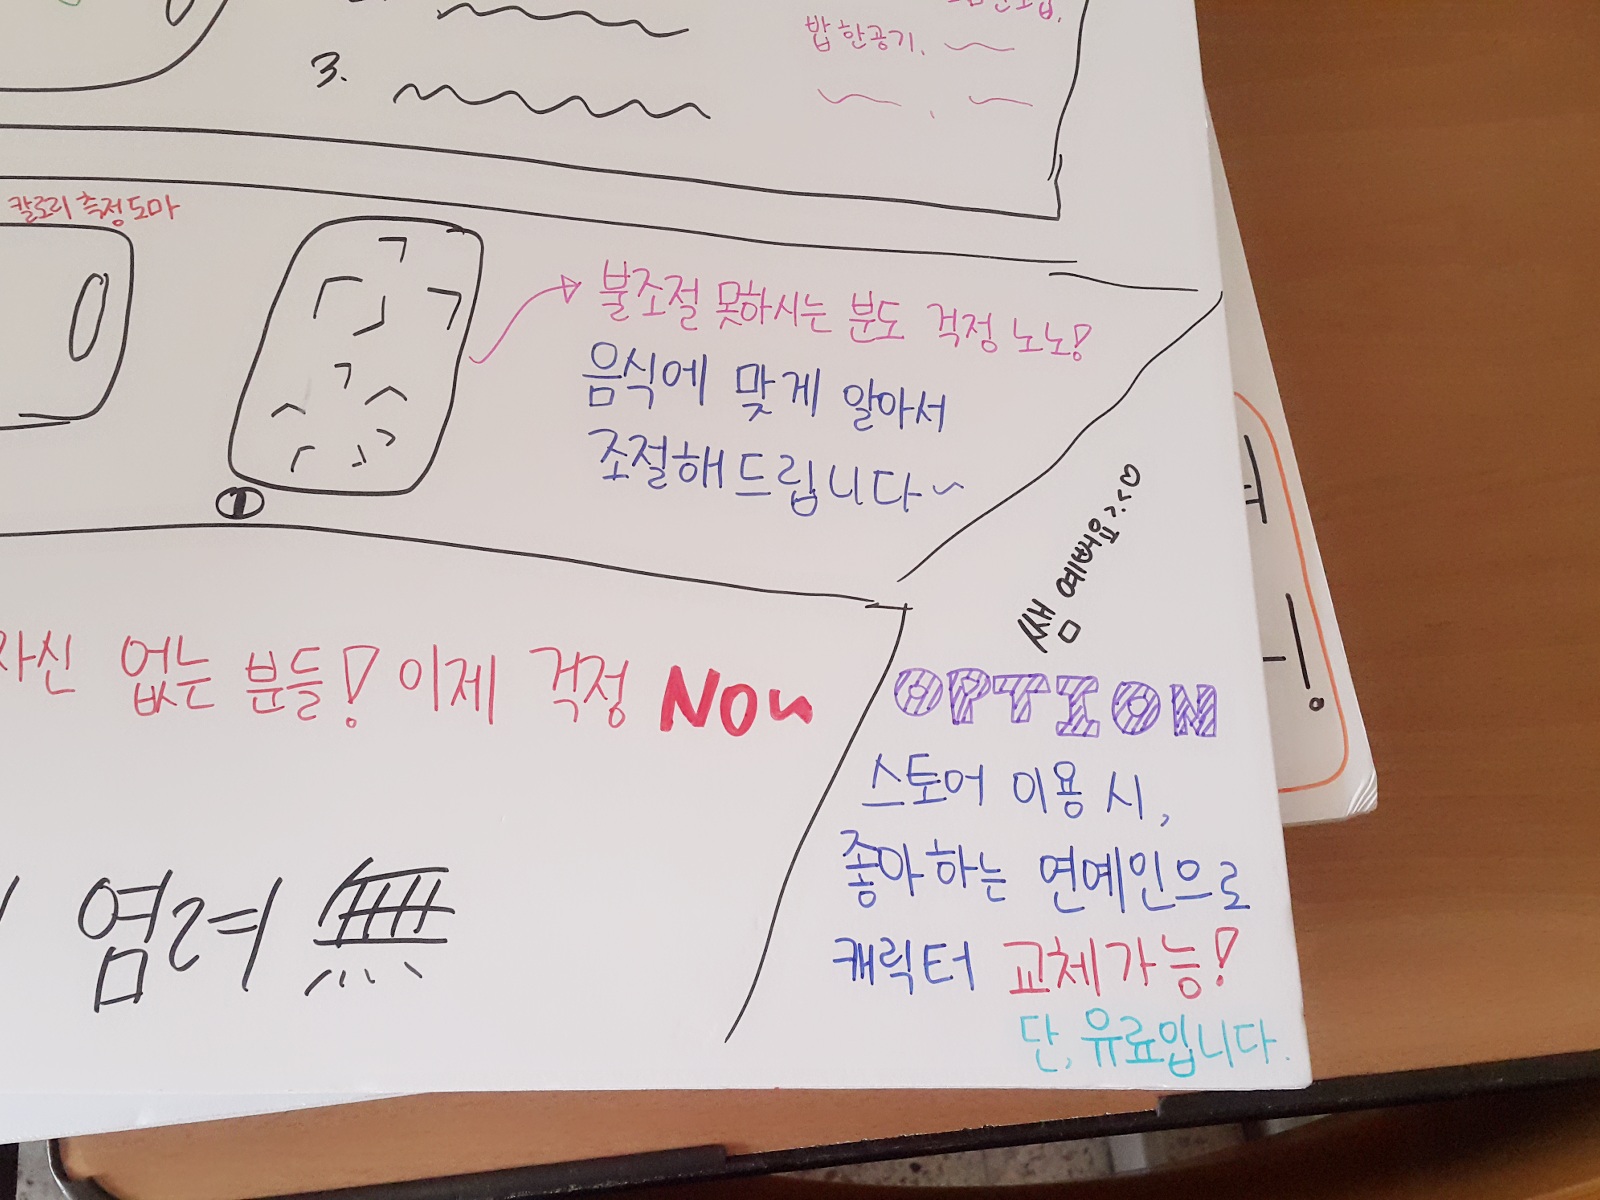 밥 한공기.
3.
칼로리 측정 도마
불조절 못하시는 분도 걱정 노노!
음식에 맞게 알아서
조절해드립니다~
쌤 예뻐요>.<♡
자신 없는 분들! 이제 걱정 Non
염려 無
OPTION
스토어 이용 시,
좋아하는 연예인으로
캐릭터 교체가능!
단, 유료입니다.